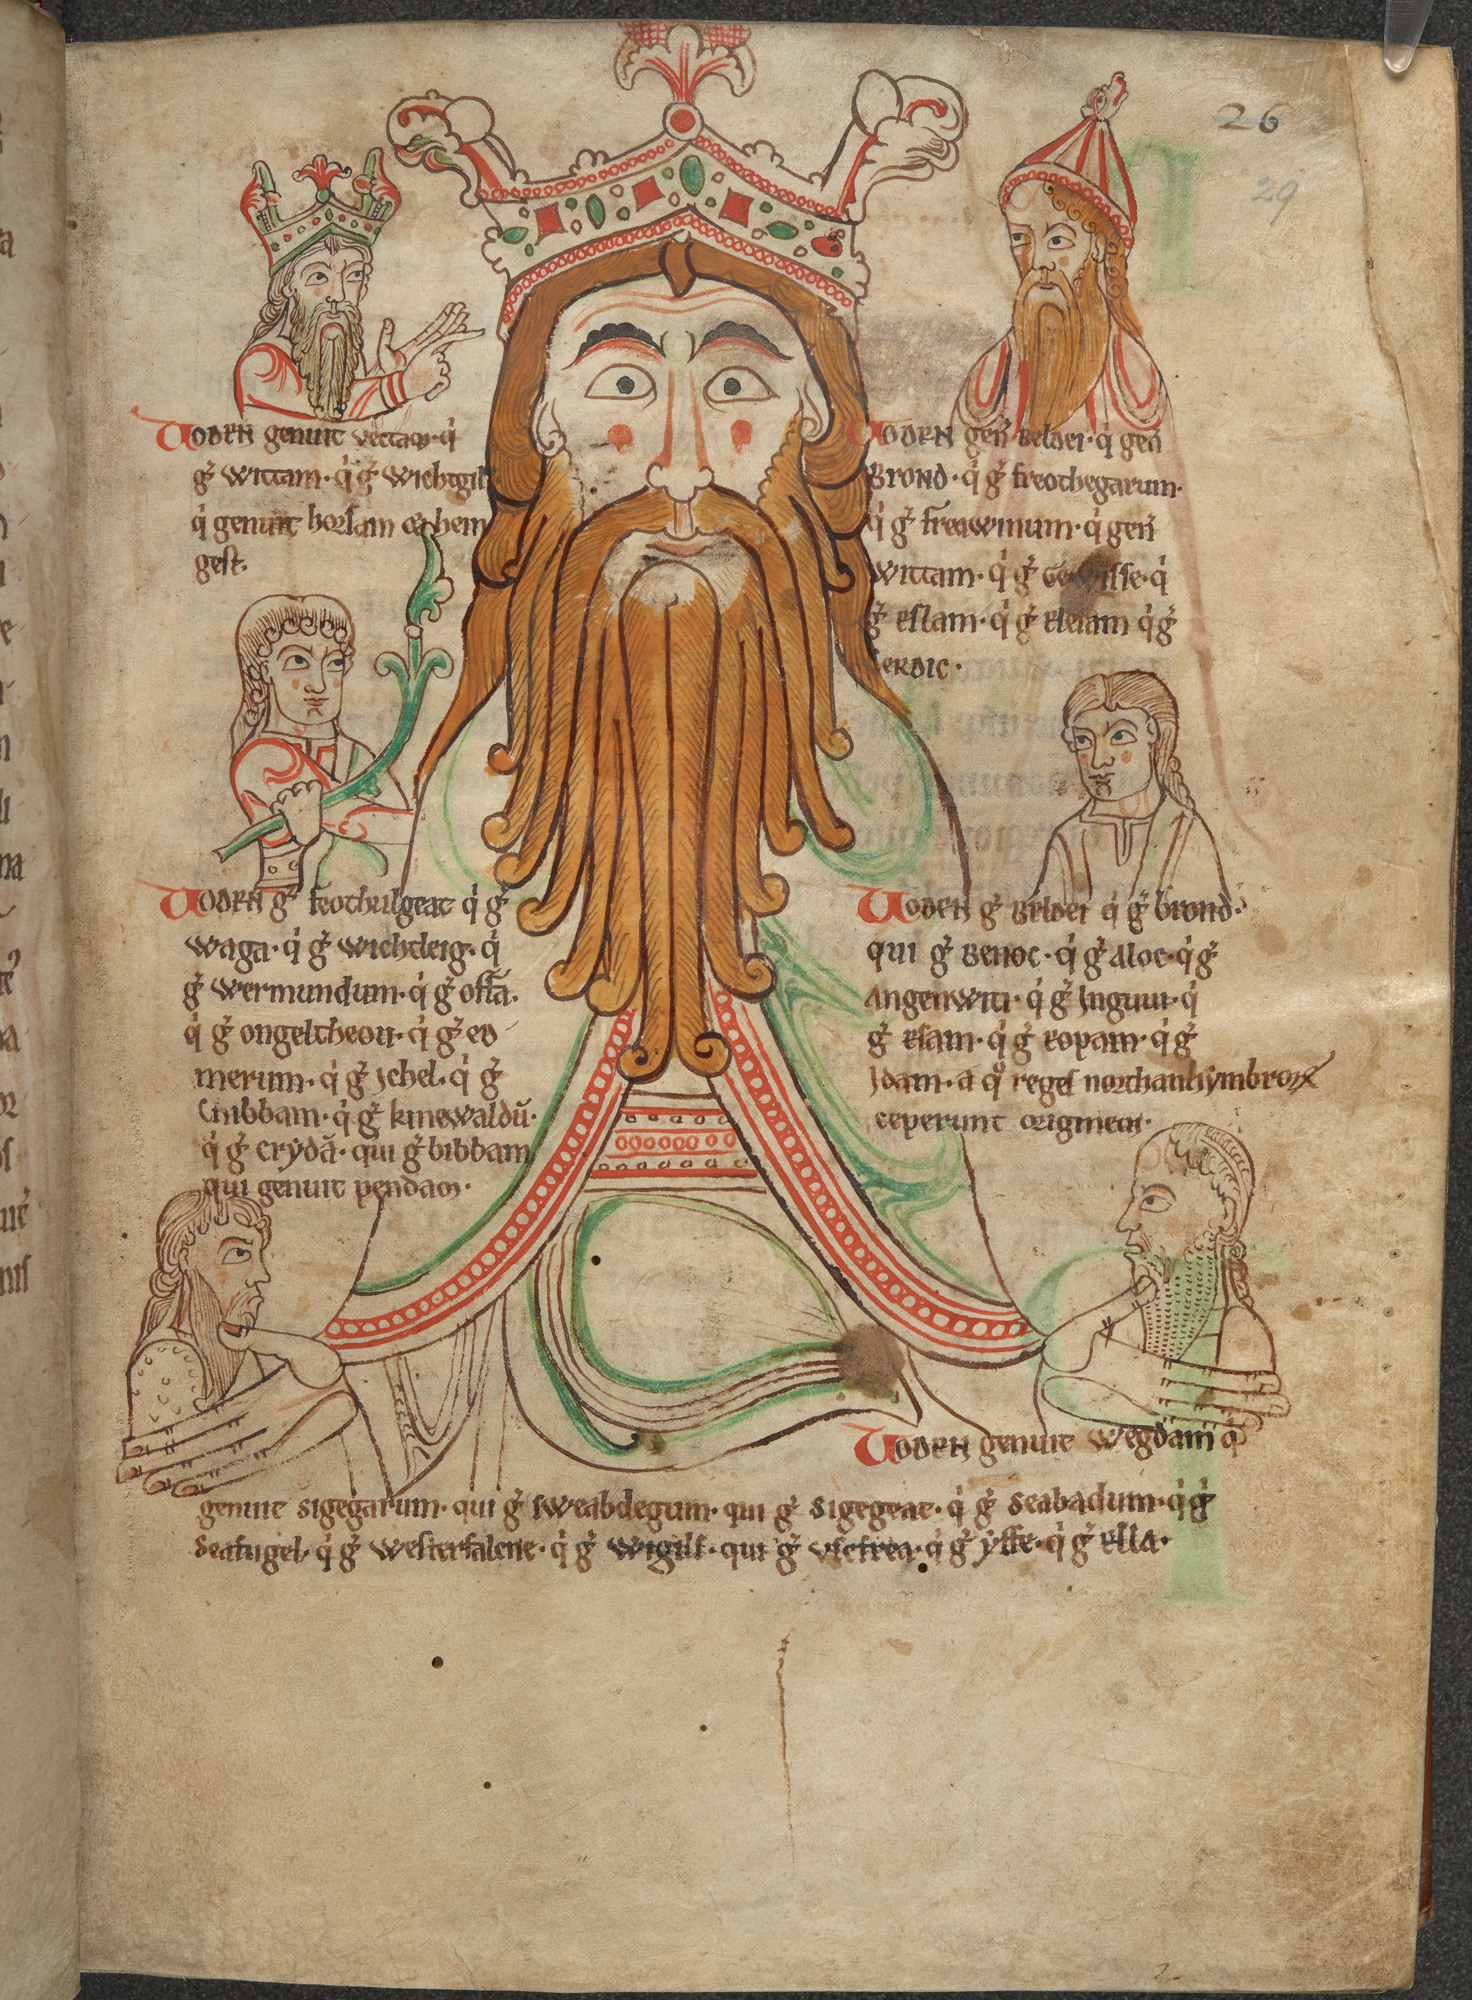 26
29
Woden genuit vectam· q̇
g̓ wittam· q̇ g̓ wichtgil
q̇ genuit horsam & hen
gest·
Woden gen̄ Beldei· q̇ gen̄
Brond· q̇ g̓ freothegarum·
q̇ g̓ freawinum· q̇ gen̄
wittam· q̇ g̓ Gewisse· q̇
g̓ eslam· q̇ g̓ elesam q̇ g̓
Cerdic·
Woden g̓ feothulgeat q̇ g̓
waga· q̇ g̓ wichtleig· q̇
g̓ wermundum· q̇ g̓ offā·
q̇ g̓ ongeltheou· q̇ g̓ eo
merum· q̇ g̓ ichel· q̇ g̓
Cnibbam· q̇ g̓ kinewaldū·
q̇ g̓ crydā· qui g̓ bibbam
qui genuit pendam·
Woden g̓ Beldei q̇ g̓ brond·
qui g̓ Benoc· q̇ g̓ Aloc· q̇ g̓
Angenwit· q̇ g̓ Inguui· q̇
g̓ esam· q̇ g̓ eopam· q̇ g̓
Idam· a qͦ reges northanhymbroꝝ
ceperunt originem·
Woden genuit wegdam q̇
genuit sigegarum· qui g̓ sweabdegum· qui g̓ sigegeat· q̇ g̓ seabadum· q̇ g̓
seafugel· q̇ g̓ westerfalcne· q̇ g̓ wigils· qui g̓ uscfrea· q̇ g̓ yffe· q̇ g̓ ella·